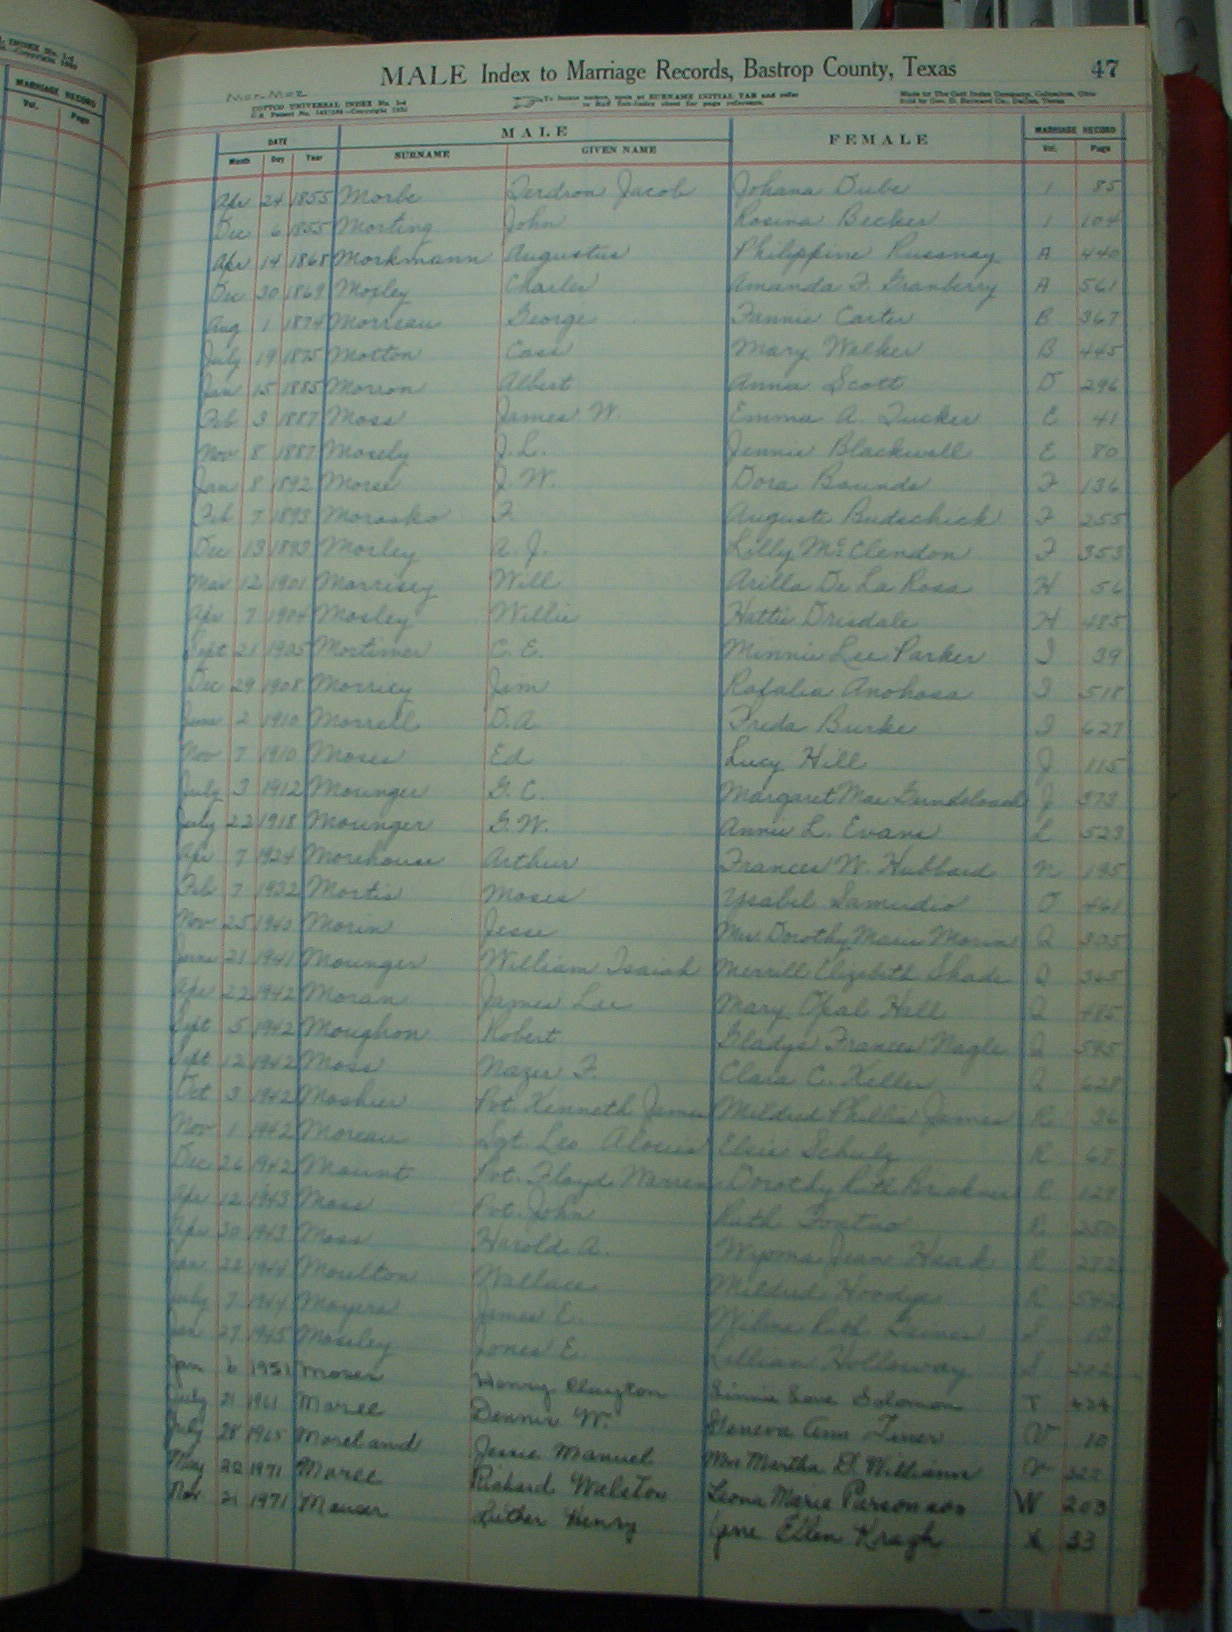 MARRIAGE RECORD
Vol. Page
MALE Index to Marriage Records, Bastrop County, Texas 47
Mor-Moz
COTTCO UNIVERSAL INDEX No. 1-d
To locate names, open at SURNAME INITIAL TAB and refer
Made by The Cott Index Company, Columbus, Ohio
DATE MALE FEMALE MARRIAGE RECORD
Month Day Year SURNAME GIVEN NAME Vol. Page
Apr 24 1855 Morbe Jacob Johana Dube 1 85
Dec 6 1855 Morting John Rosina Becker 1 104
Apr 14 1868 Morkmann Augustus Philippine A 440
Dec 30 1869 Mosley Charles Amanda F. Granberry A 561
Aug 1 1874 Morreau George Fannie Carter B 367
July 19 1875 Motton Cass Mary Walker B 445
Jan 15 1885 Morron Albert Anna Scott D 296
Feb 3 1887 Moss James W. Emma A. Tucker E 41
Nov 8 1887 Mosely J. L. Jennie Blackwell E 80
Jan 8 1892 Morse J. W. Dora Bounds F 136
Feb 7 1893 Morosko F. Auguste Budschick F 255
Dec 13 1893 Mosley A. J. Lilly McClendon F 353
Mar 12 1901 Morrisey Will Arilla De La Rosa H 56
Apr 7 1904 Mosley Willie Hattie Drisdale H 485
Sept 21 1905 Mortimer C. E. Minnie Lee Parker I 39
Dec 29 1908 Morricy Jim Rafalia I 518
June 2 1910 Morrell D. A. Freda Burke I 627
Nov 7 1910 Moses Ed Lucy Hill J 115
July 3 1912 Mounger G. C. Margaret Mae J 373
July 22 1918 Mounger G. W. Annie L. Evans L 523
Apr 7 1924 Morehouse Arthur Frances W. Hubbard N 195
Feb 7 1932 Mortis Moses Ysabel Samudio O 461
Nov 25 1940 Morin Jesse Mrs Dorothy Marie Morin Q 305
June 21 1941 Mounger William Isaiah Merrill Elizabeth Shade Q 365
Apr 22 1942 Moran James Lee Mary Opal Hall Q 485
Sept 5 1942 Moughon Robert Gladys Frances Nagle Q 595
Sept 12 1942 Moss Nazer F. Clara C. Keller Q 628
Oct 3 1942 Moshier Pvt. Kenneth James Mildred Phillis James R 36
Nov 1 1942 Moreau Sgt. Leo Alouis Elsie Schulz R 67
Dec 26 1942 Mount Pvt. Floyd Warren Dorothy Ruth R 129
Apr 12 1943 Moss Pvt. John Ruth R 250
Apr 30 1943 Moss Harold A. Wyoma Jean Haak R 272
Jan 22 1944 Moulton Wallace Mildred R 542
July 7 1944 Moyers James E. Wilma Ruth S 13
Jan 27 1945 Moseley Jones E. Lillian Holloway S 202
Jan 6 1951 Moser Henry Clayton Love Solomon T 434
July 21 1961 Moree Dennis W. Geneva Ann V 10
July 28 1965 Moreland Jessie Manuel Mrs Martha D. Williams V 327
May 22 1971 Moree Richard Welston Leona Marie W 203
Nov 21 1971 Mouser Luther Henry Jane Ellen Kragh X 33